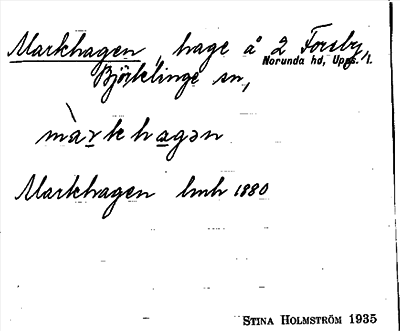 Markhagen, hage å 2 Forsby,
Norunda hd, Upps. l.
Björklinge sn,
màrkhagən
Markhagen lmh 1880
STINA HOLMSTRÖM 1935